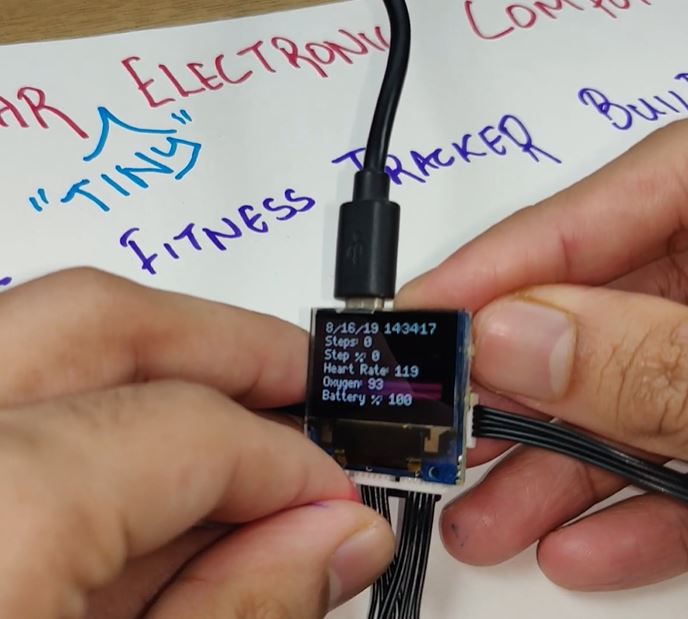 AR ELECTRONIC
"TINY"
FITNESS TRACKER
8/16/19 143417
Steps: 0
Step %: 0
Heart Rate: 119
Oxygen: 93
Battery %: 100